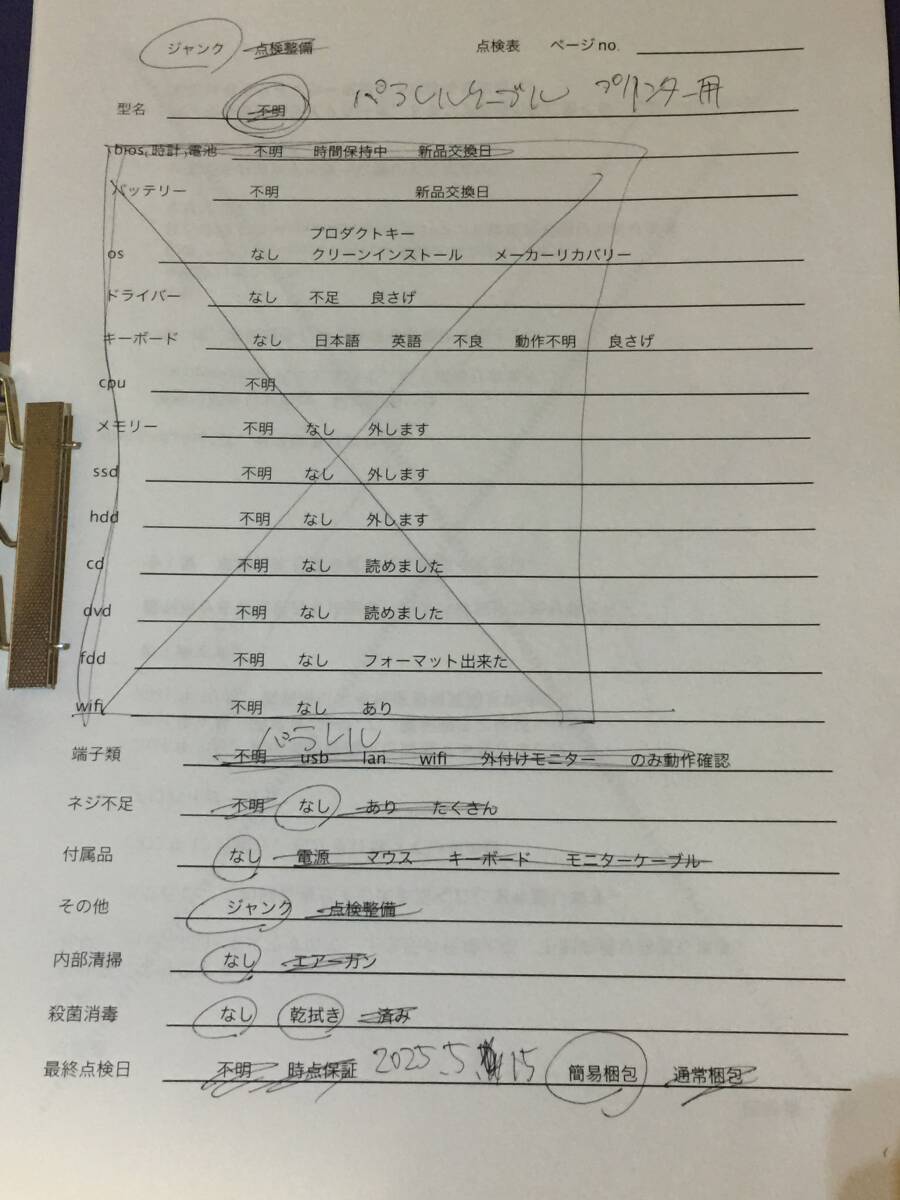 ジャンク 点検整備 点検表 ページno.
型名 不明 パラレルケーブル プリンター用
bios,時計,電池 不明 時間保持中 新品交換日
バッテリー 不明 新品交換日
プロダクトキー
os なし クリーンインストール メーカーリカバリー
ドライバー なし 不足 良さげ
キーボード なし 日本語 英語 不良 動作不明 良さげ
cpu 不明
メモリー 不明 なし 外します
ssd 不明 なし 外します
hdd 不明 なし 外します
cd 不明 なし 読めました
dvd 不明 なし 読めました
fdd 不明 なし フォーマット出来た
wifi 不明 なし あり
パラレル
端子類 不明 usb lan wifi 外付けモニター のみ動作確認
ネジ不足 不明 なし あり たくさん
付属品 なし 電源 マウス キーボード モニターケーブル
その他 ジャンク 点検整備
内部清掃 なし エアーガン
殺菌消毒 なし 乾拭き 済み
最終点検日 不明 時点保証 2025.5 15 簡易梱包 通常梱包